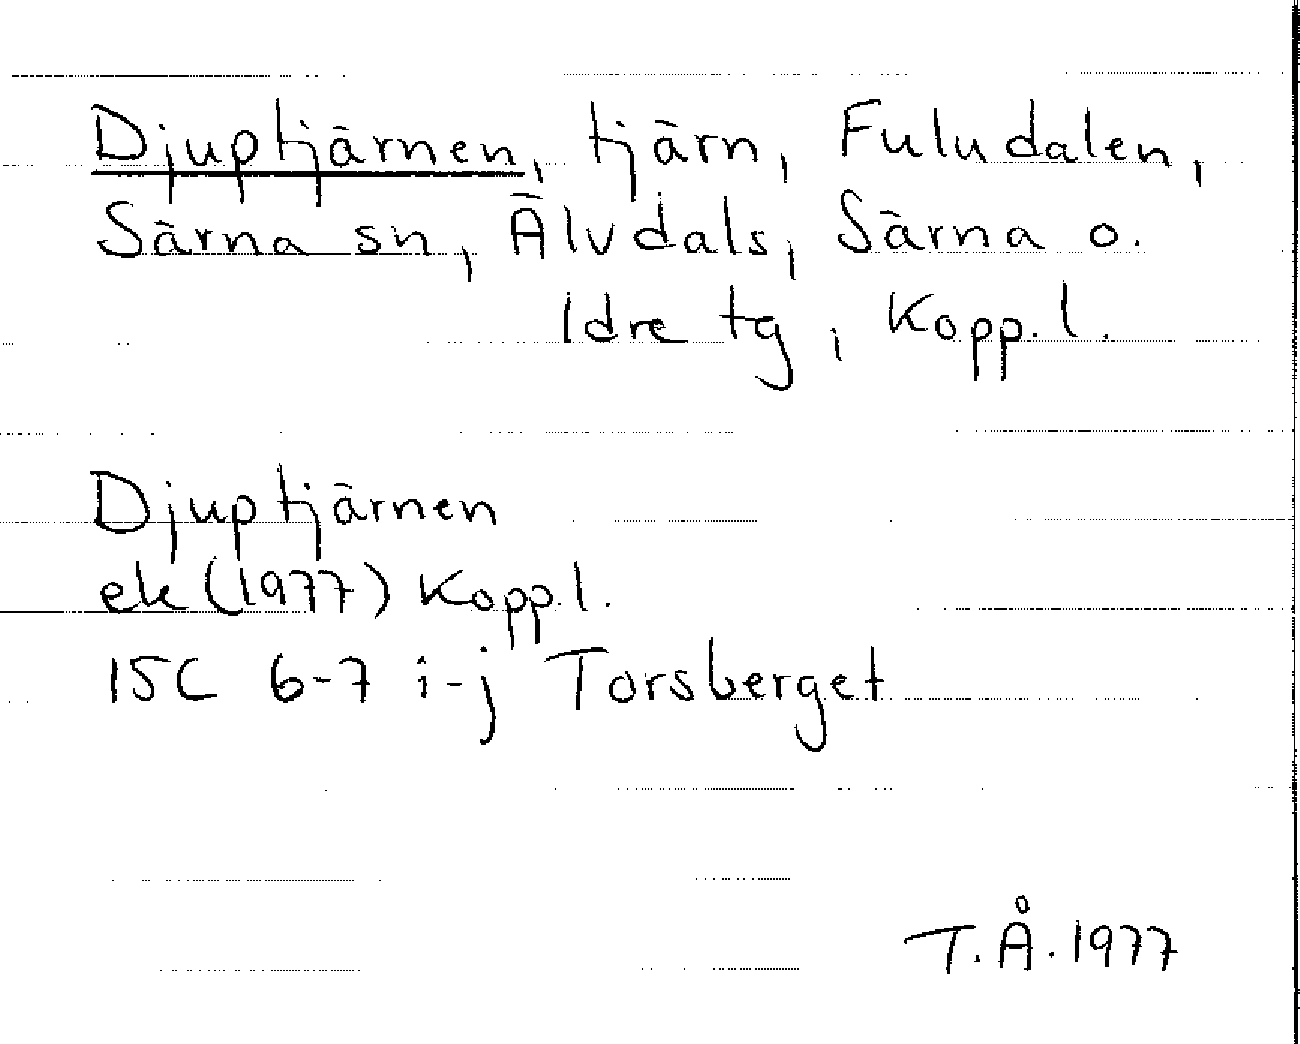 Djuptjärnen, tjärn, Fuludalen,
Särna sn, Älvdals, Särna o.
Idre tg, Kopp. l.
Djuptjärnen
ek (1977) Kopp. l.
15C 6-7 i-j Torsberget
T.Å. 1977